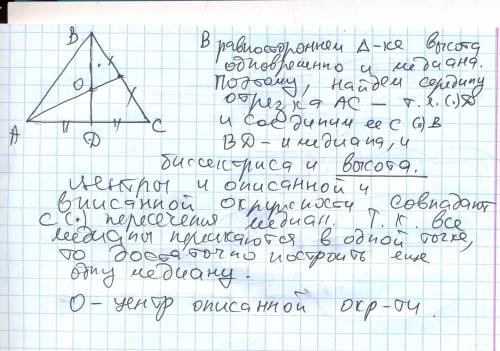 B
O
A
D
C
В
равностороннем Δ-ке высота
одновременно и медиана.
Поэтому, найдем середину
отрезка АС — т.е. (·)D
и соединим ее с (·)В
BD - и медиана, и
биссектриса и высота.
Центры и описанной и
вписанной окружности совпадают
с (·) пересечения медиан. Т.к. все
медианы пересекаются в одной точке,
то достаточно построить еще
одну медиану.
О - центр описанной окр-ти.